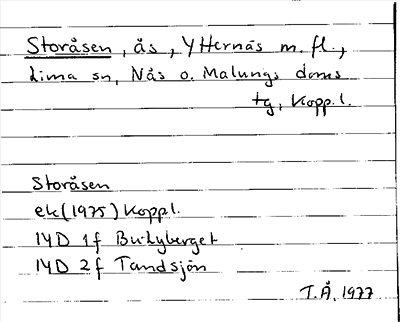 Storåsen, ås, Ytternäs m. fl.,
Lima sn, Nås o. Malungs doms
tg, Kopp. l.
Storåsen
ek (1975) Koppl.
14D 1f Bullyberget
14D 2f Tandsjön
T.Å. 1977